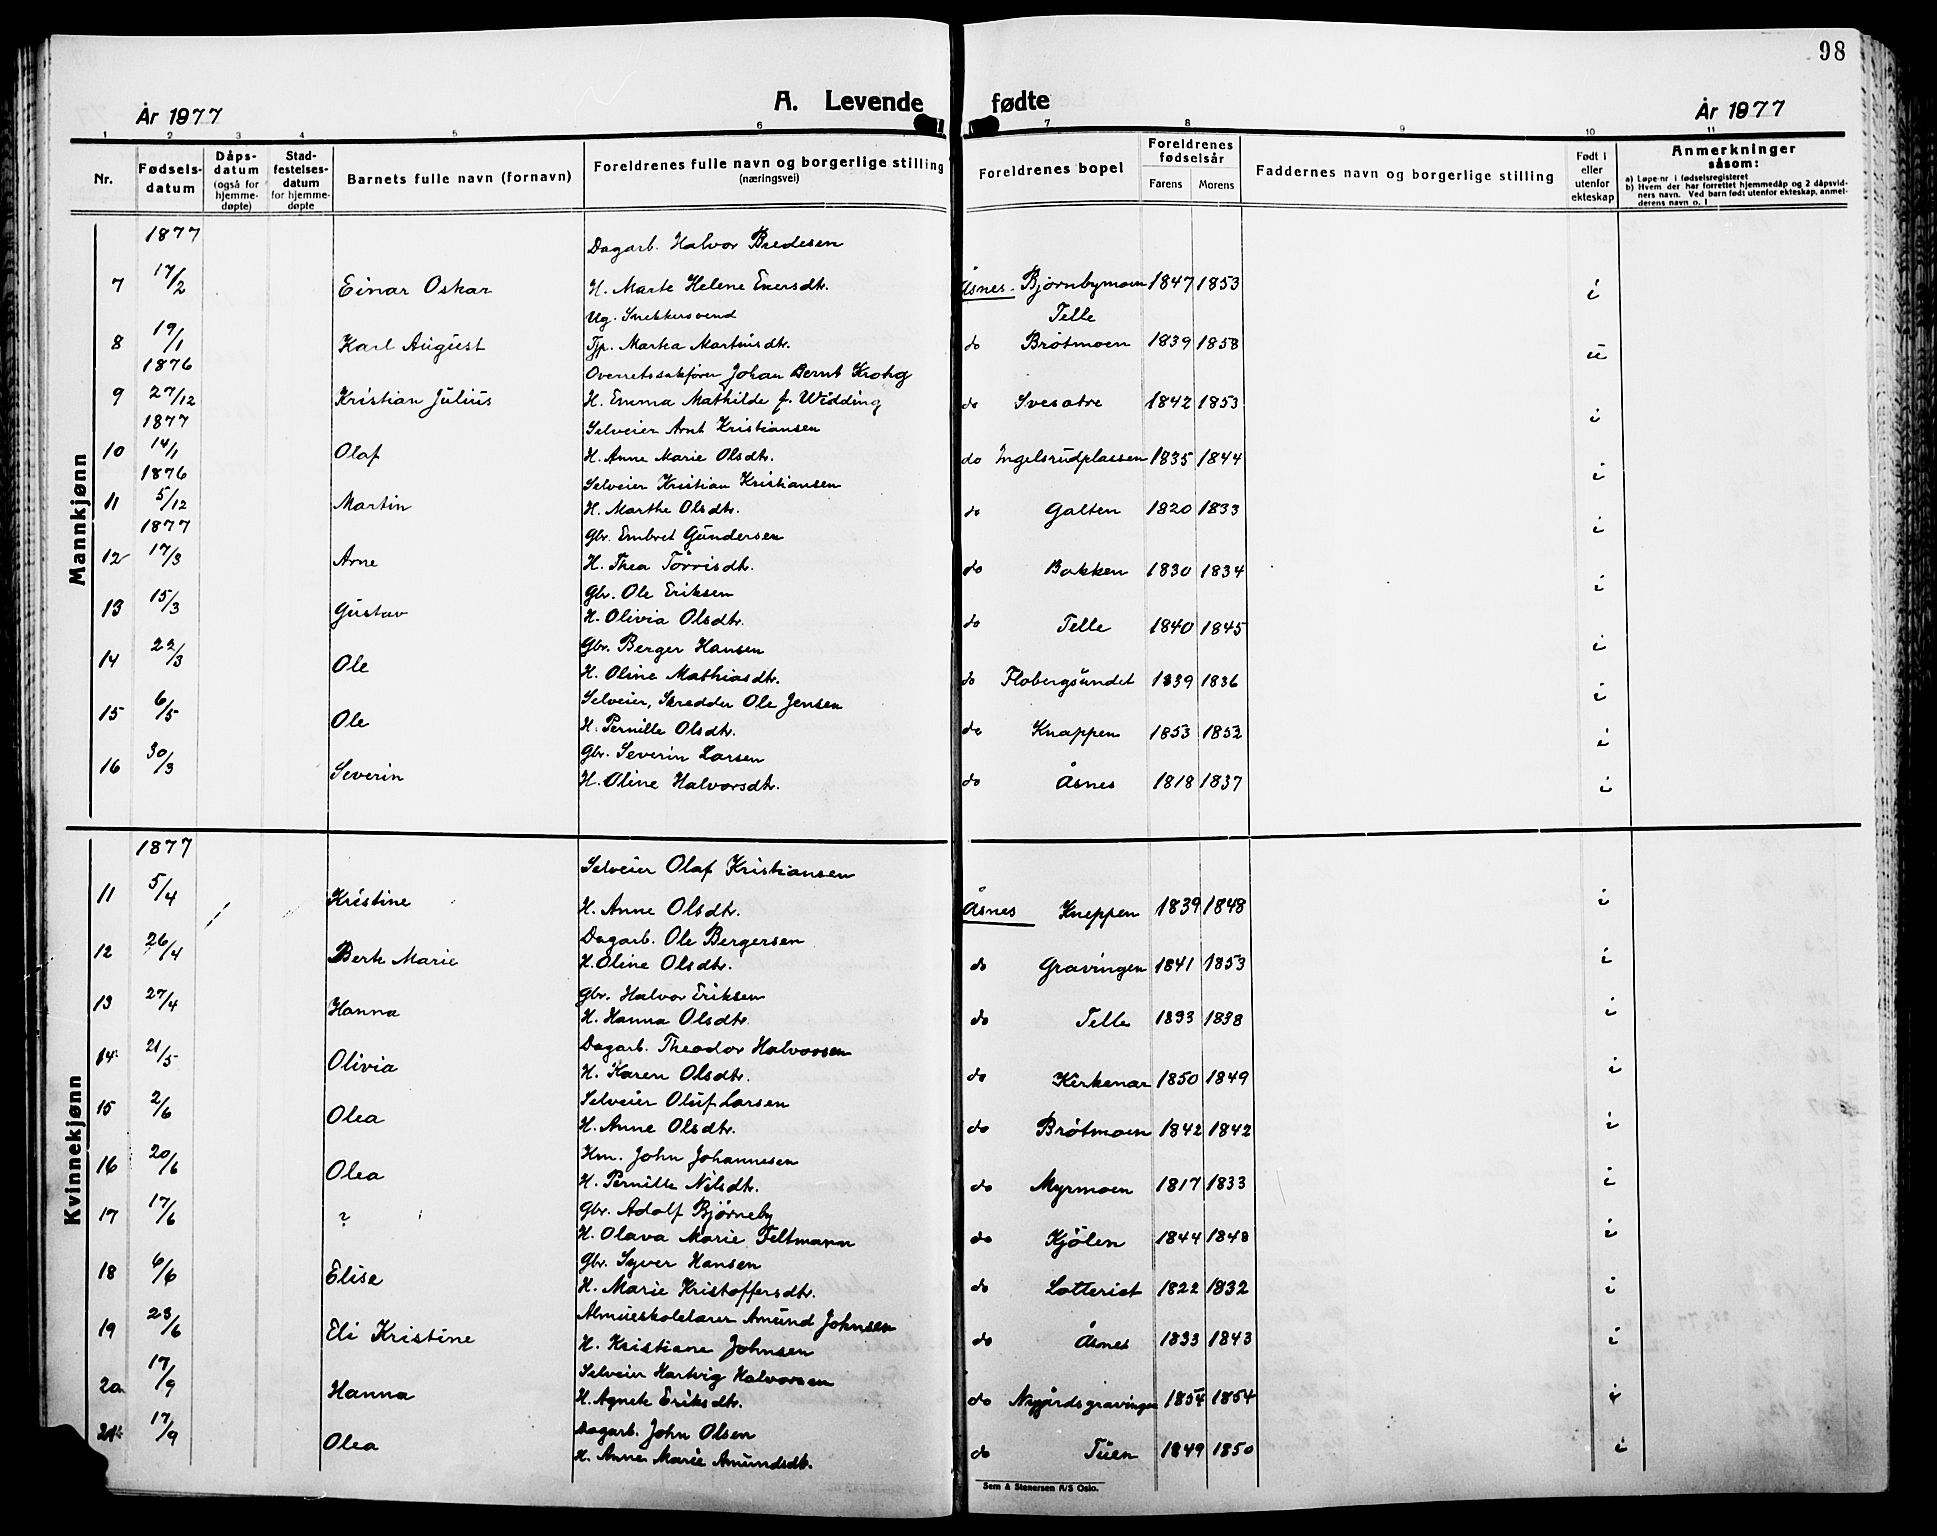 98
A. Levende fødte
År 1877
År 1877
1 2 3 4 5 6 7 8 9 10 11
Nr. Fødselsdatum Dåpsdatum (også for hjemmedøpte) Stadfestelsesdatum for hjemmedøpte Barnets fulle navn (fornavn) Foreldrenes fulle navn og borgerlige stilling (næringsvei) Foreldrenes bopel Foreldrenes fødselsår Farens Morens Faddernes navn og borgerlige stilling Født i eller utenfor ekteskap Anmerkninger såsom:
a) Løpe-nr i fødselsregisteret
b) Hvem der har forrettet hjemmedåp og 2 dåpsvidners navn. Ved barn født utenfor ekteskap, anmelderens navn o. l
Mannkjønn
1877 Dagarb. Halvor Bredesen
7 17/2 Einar Oskar H. Marte Helene Eversdtr. Åsnes - Bjørnbymoen 1847 1853 i
Ug. Snekkersvend Telle
8 19/1 Karl August Tjp. Martea Martinisdtr. do Brøtmoen 1839 1853 u
1876 Overretssakfører Johan Bernt Krohg
9 27/12 Kristian Julius H. Emma Mathilde f. Widding do Svesatre 1842 1853 i
1877 Selveier Arnt Kristiansen
10 14/1 Olaf H. Anne Marie Olsdtr. do Ingelsrudplassen 1835 1844 i
1876 Selveier Kristian Kristiansen
11 5/12 Martin H. Marthe Olsdtr. do Galten 1820 1833 i
1877 Gbr. Embret Gundersen
12 17/3 Arne H. Thea Tørrisdtr. do Bakken 1830 1834 i
Gbr. Ole Eriksen
13 15/3 Gustav H. Olivia Olsdtr. do Telle 1840 1845 i
Gbr. Berger Hansen
14 22/3 Ole H. Oline Mathiasdtr. do Flobergsundet 1839 1836 i
Selveier, Skredder Ole Jensen
15 6/5 Ole H. Pernille Olsdtr. do Knappen 1853 1852 i
Gbr. Severin Larsen
16 30/3 Severin H. Oline Halvorsdtr. do Åsnes 1818 1837 i
Kvinnekjønn
1877 Selveier Olaf Kristiansen
11 5/4 Kristine H. Anne Olsdtr. Åsnes Kneppen 1839 1848 i
Dagarb. Ole Bergersen
12 26/4 Berte Marie H. Oline Olsdtr. do Gravingen 1841 1853 i
Gbr. Halvor Eriksen
13 27/4 Hanna H. Hanna Olsdtr. do Telle 1833 1838 i
Dagarb. Theodor Halvorsen
14 21/5 Olivia H. Karen Olsdtr. do Kirkenær 1850 1849 i
Selveier Oluf Larsen
15 2/6 Olea H. Anne Olsdtr. do Brøtmoen 1842 1842 i
Hm. John Johannesen
16 20/6 Olea H. Pernille Nilsdtr. do Myrmoen 1817 1833 i
Gbr. Adolf Bjørneby
17 17/6 ? H. Olava Marie Feltmann do Kjølen 1844 1848 i
Gbr. Syver Hansen
18 6/6 Elise H. Marie Kristoffersdtr. do Lotteriet 1822 1832 i
Almueskolelærer Amund Johnsen
19 23/6 Eli Kristine H. Kristiane Johnsen do Åsnes 1833 1843 i
Selveier Hartvig Halvorsen
20 17/9 Hanna H. Agnete Eriksdtr. do Nygårdsgravingen 1854 1854 i
Dagarb. John Olsen
21 17/9 Olea H. Anne Marie Amundsdtr. do Tuen 1849 1850 i
Sem & Stenersen A/S Oslo.